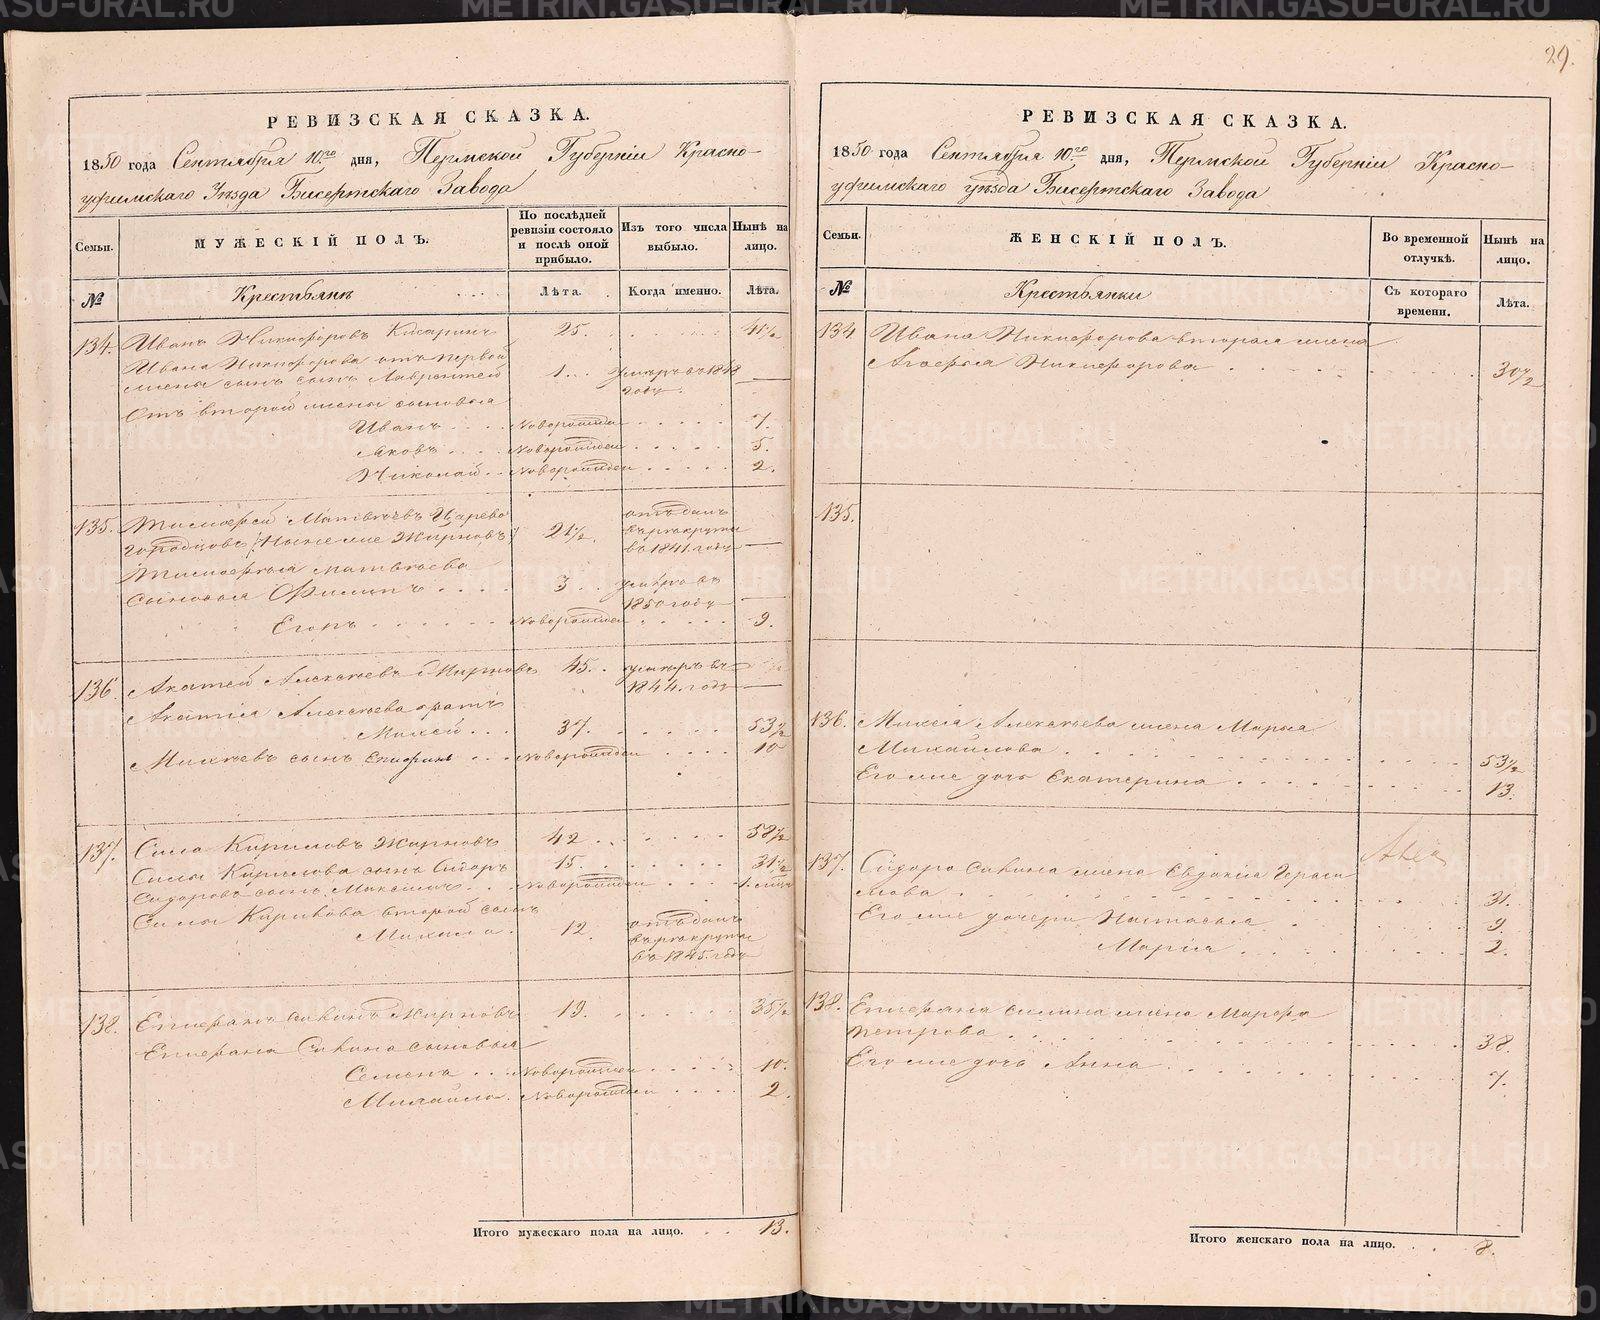 29.
РЕВИЗСКАЯ СКАЗКА.
1850 года Сентября 10го дня, Пермской Губерніи Красно-
уфимскаго Уѣзда Бисертскаго Завода
Семьи.
МУЖЕСКІЙ ПОЛЪ.
По послѣдней ревизіи состояло и послѣ оной прибыло.
Изъ того числа выбыло.
Нынѣ на лицо.
№
Крестьянъ
Лѣта.
Когда именно.
Лѣта.
134. Иванъ Никифоровъ 25. 41½
Ивана Никифорова отъ первой
жены сынъ Лаврентей 1. умеръ въ 1848
году.
Отъ второй жены сыновья
Иванъ новорожден 7.
Яковъ новорожден 5.
Николай новорожден 2.
135. Тимофей Матвѣевъ Царево
городцовъ (Нынѣ же Жирновъ) 21½. отъданъ
въ рекруты
въ 1841. году
Тимофея Матвѣева
сыновья Филипъ 3 умеръ въ
1850 году
Егоръ новорожден 9.
136. Акатей Алексѣевъ Жирновъ 45. умеръ въ
1844. году
Акатія Алексѣева братъ
Михей 37. 53½
Михѣевъ сынъ Епифанъ новорожден 10
137. Сила Кириловъ Жирновъ 42 58½
Силы Кирилова сынъ Сидоръ 15. 31½
Сидоровъ сынъ Максимъ новорожден
Силы Кирилова второй сынъ
Михаило. 12. отъданъ
въ рекруты
въ 1845. году
138. Епифанъ Савинъ Жирновъ 19. 35½
Епифана Савина сыновья
Семенъ новорожден 10.
Михайло новорожден 2.
Итого мужескаго пола на лицо. 13.
РЕВИЗСКАЯ СКАЗКА.
1850 года Сентября 10го дня, Пермской Губерніи Красно-
уфимскаго уѣзда Бисертскаго Завода
Семьи.
ЖЕНСКІЙ ПОЛЪ.
Во временной отлучкѣ.
Нынѣ на лицо.
№
Крестьянки
Съ котораго времени.
Лѣта.
134. Ивана Никифорова вторая жена
Агафья Никифорова 30½
135.
136. Михея Алексѣева жена Марья
Михайлова 53½
Его же дочь Екатерина 13.
137. Сидора Савина жена Евдокія Гераси
мова 31.
Его же дочери Настасья 9.
Марія 2.
138. Епифана Силина жена Марфа
Петрова 38.
Его же дочь Анна 7.
Итого женскаго пола на лицо. 8.
METRIKI.GASO-URAL.RU